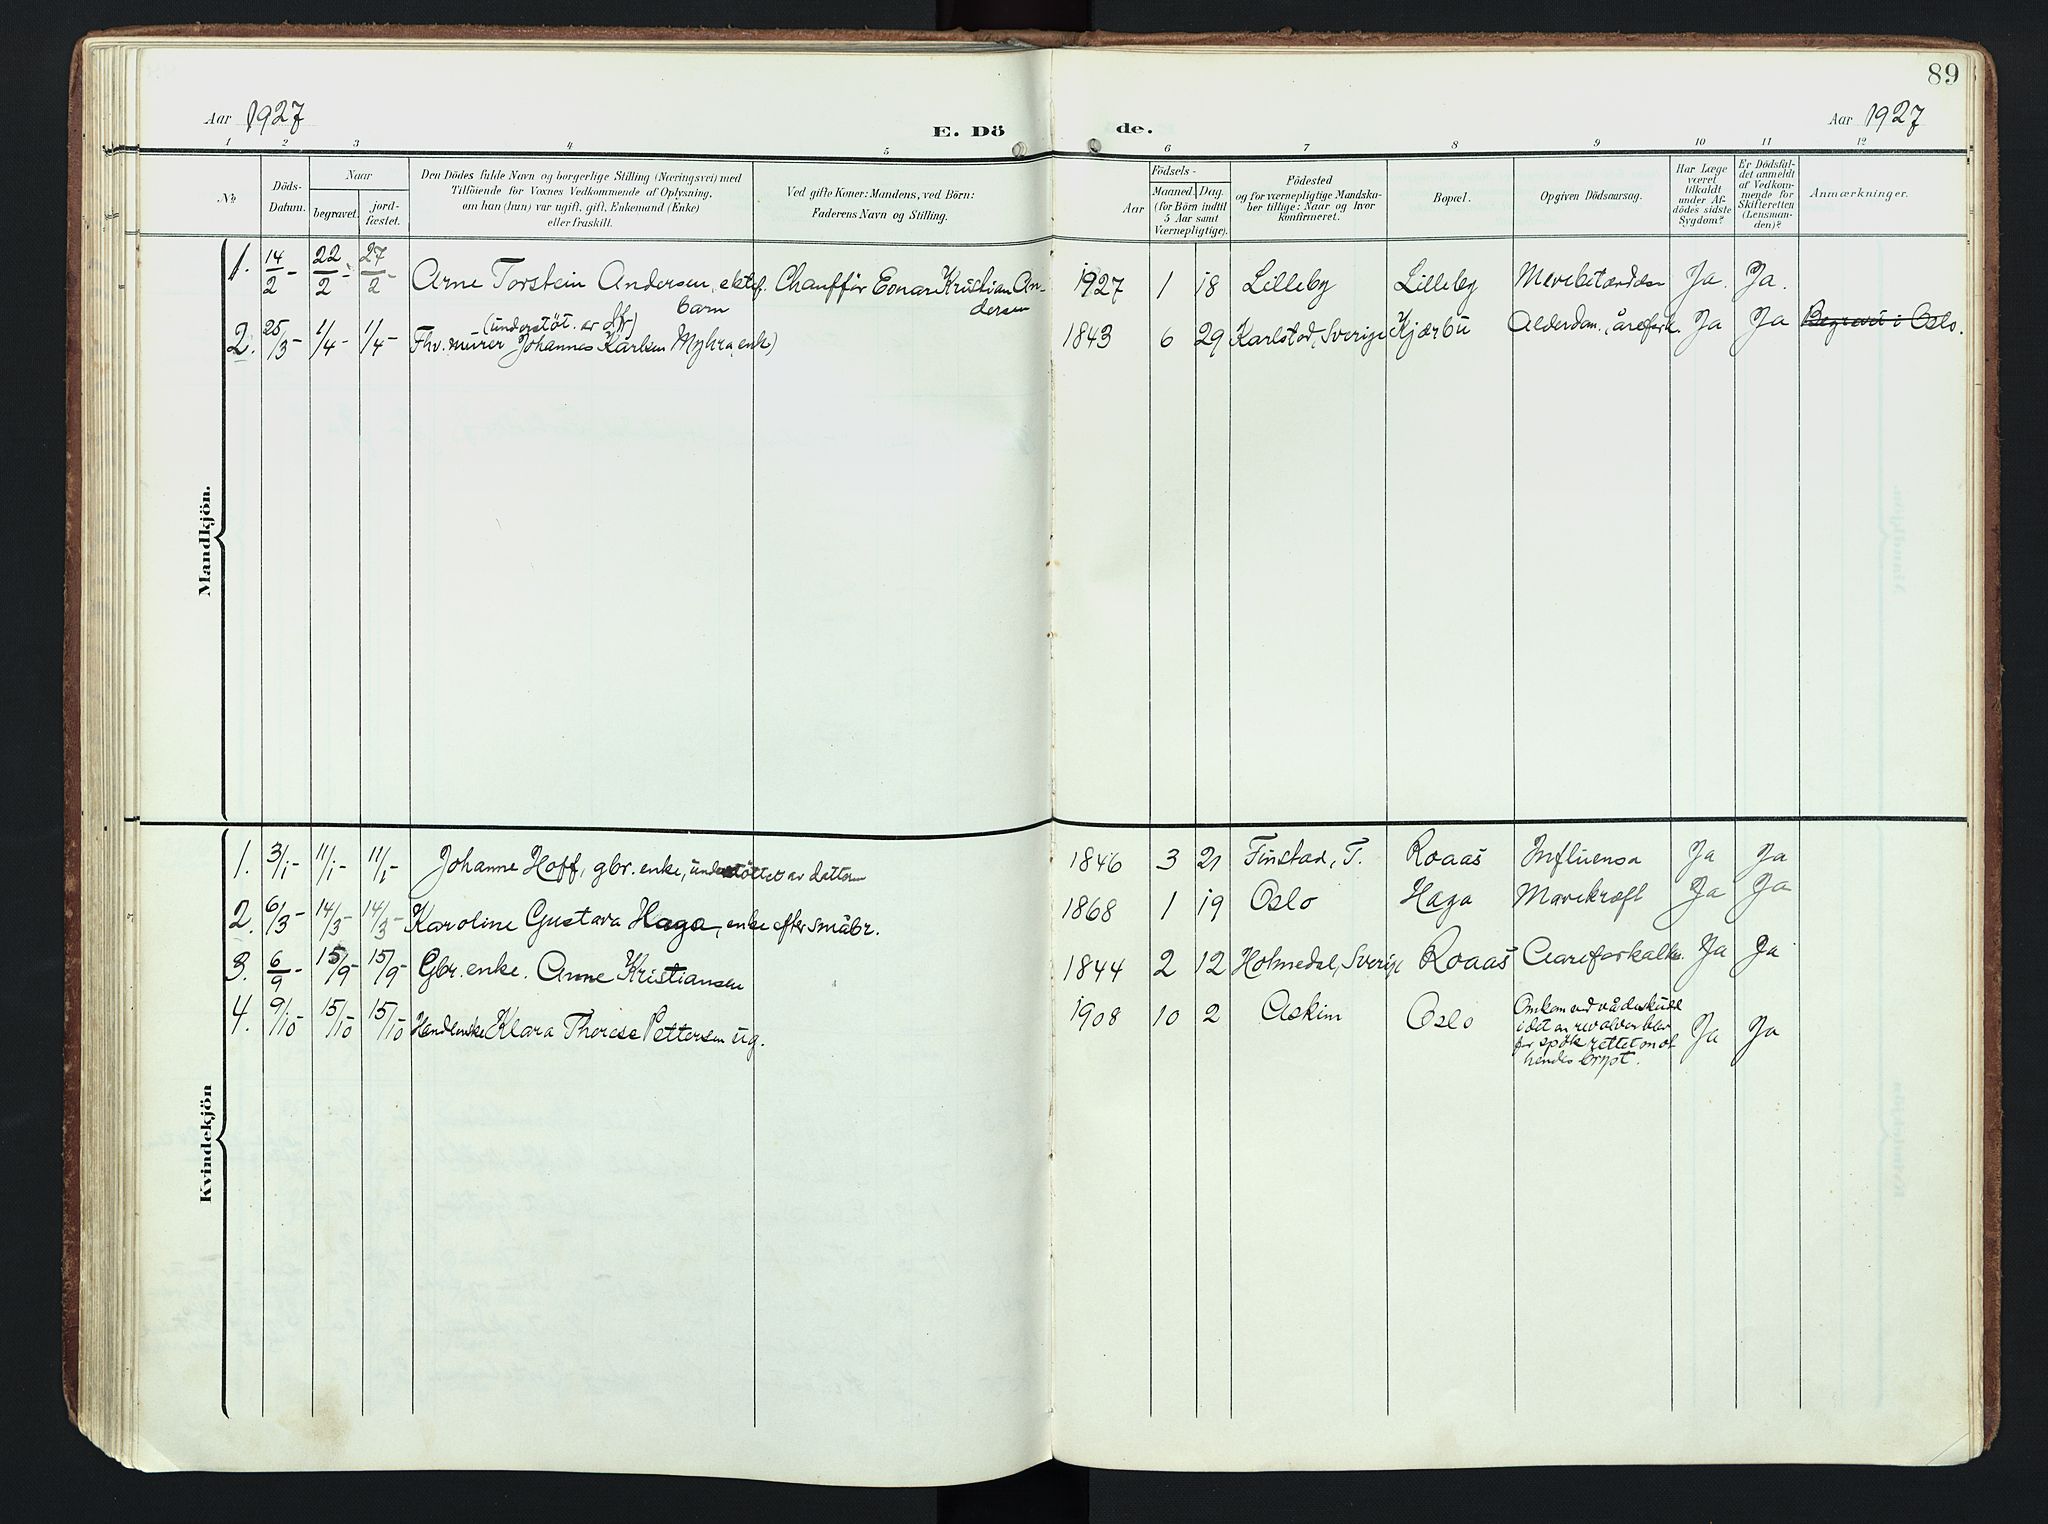 89
Aar 1927
E. Dö
de.
Aar 1927
1 2 3 4 5 6 7 8 9 10 11 12
No
Döds-
Datum.
Naar
begravet.
jord-
fæstet.
Den Dödes fulde Navn og borgerlige Stilling (Næringsvei) med
Tilföiende for Voxnes Vedkommende af Oplysning,
om han (hun) var ugift, gift, Enkemand (Enke)
eller fraskilt.
Ved gifte Koner: Mandens, ved Börn:
Faderens Navn og Stilling.
Födsels-
Aar
Maaned.
Dag.
(for Börn indtil
5 Aar samt
Værnepligtige).
Födested
og for værnepligtige Mandska-
ber tillige: Naar og hvor
konfirmeret.
Bopæl.
Opgiven Dödsaarsag.
Har Læge
været
tilkaldt
under Af-
dödes sidste
Sygdom?
Er Dödsfal-
det anmeldt
af Vedkom-
mende for
Skifteretten
(Lensman-
den)?
Anmærkninger.
Mandkjön.
1. 14/2 - 22/2 - 27/2 - Arne Torstein Andersen, ektef. Chaufför Einar Kristian An- 1927 1 18 Lilleby Lilleby Ja. Ja.
barn
dersen
(understöt. av
2. 25/3 - 1/4 - 1/4 - Fhv. murer Johannes Karlsen Myhra, enk) 1843 6 29 Karlstad, Sverige Kjærbu Alderdom, Ja Ja Begravet i Oslo.
Kvindekjön
1. 3/1 - 11/1 - 11/1 - Johanne Hoff, gbr. enke, understöttet av datteren 1846 3 21 Finstad, T. Roaas Influensa Ja Ja
2. 6/3 - 14/3 - 14/3 - Karoline Gustava Haga, enke efter småbr. 1868 1 19 Oslo Haga Marekræft Ja Ja
3. 6/9 - 15/9 - 15/9 - Gbr. enke. Anne Kristiansen 1844 2 12 Holmedal, Sverige Roaas Aareforkalkn. Ja Ja
4. 9/10 15/10 15/10 Klara Therese Pettersen ug. 1908 10 2 Askim Oslo Omkom ved vådeskudd
idet en revolver blev
for spök rettet mot
hendes bryst. Ja Ja